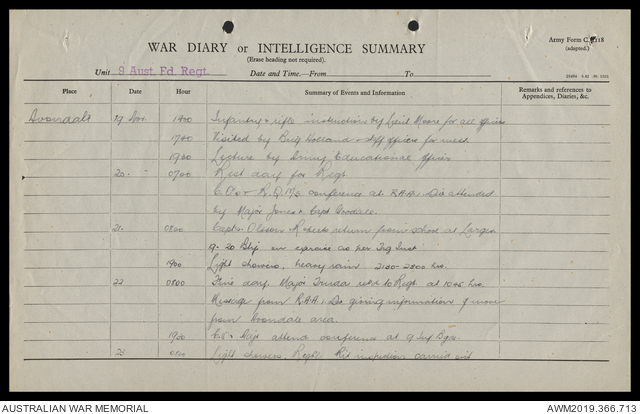 WAR DIARY or INTELLIGENCE SUMMARY
Army Form C. 2118
(Erase heading not required).
(adapted.)
Unit 9 Aust. Fd. Regt. Date and Time.—From To
Place Date Hour Summary of Events and Information Remarks and references to Appendices, Diaries, &c.
Avondale 19 Nov. 1400 Infantry & rifle instruction by Lieut Moore for all officers
1700 Visited by Brig Holland & staff officers for mess.
1930 Lecture by Army Educational officer
20 " 0700 Rest day for Regt
conference at R.A.A. 1 Div attended
by Major Jones & Capt Goodale.
21. 0800 Capts Olsson & Roberts return from school at Largs
19. 20 Bty on exercise as per Trg Inst
1900 Light showers, heavy rain 2130-2300 hrs.
22 0800 Fine day. Major retd to Regt at 1045 hrs.
Message from R.A.A. 1 Div giving information of move
from Avondale area.
1930 attend conference at 9 Inf Bde.
23 0800 Light showers. Regtl Kit inspection carried out
AUSTRALIAN WAR MEMORIAL
AWM2019.366.713